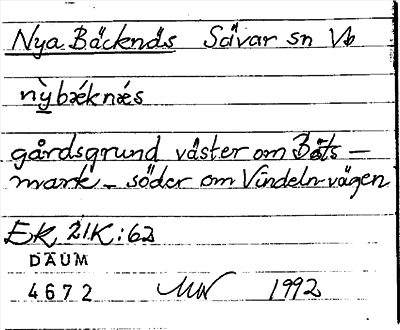 Nya Bäcknäs Sävar sn Vb
nỳbæknæs
gårdsgrund väster om Båts-
mark - söder om Vindelnvägen
Ek. 21K:6a
DAUM
4672 1992